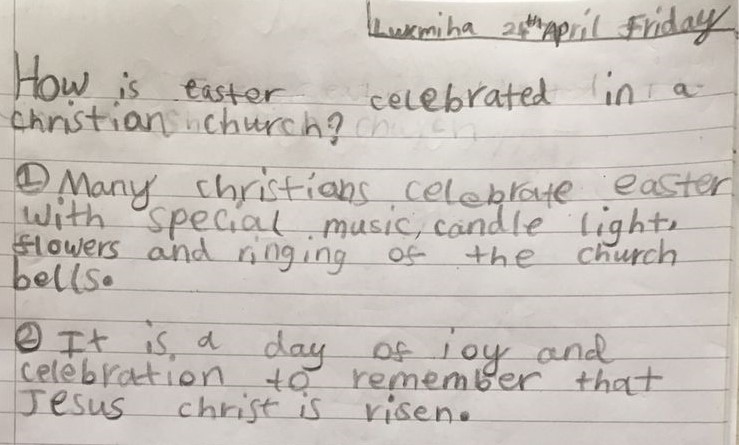 Luxmiha 24th April Friday
How is easter celebrated in a
christian church?
① Many christians celebrate easter
with special music, candle light,
flowers and ringing of the church
bells.
② It is a day of joy and
celebration to remember that
Jesus christ is risen.